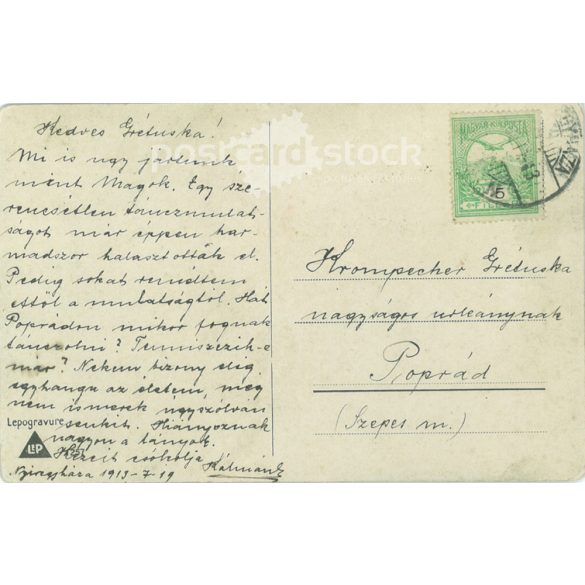 Kedves Grétuska!
Mi is ugy jártunk
mint Magok. Egy sze-
rencsétlen táncmulat-
ságot már éppen har-
madszor halasztották el.
Pedig sokat reméltem
ettől a mulatságtól. Hát
Poprádon mikor fognak
táncolni? Tenniszezik-e
már? Nekem bizony elég
egyhangu az életem, még
nem ismerek ugyszólván
senkit. Hiányoznak
nagyon a lányok.
Kezeit csókolja
Kálmán
Nyiregyháza 1913-7-19
Lepogravure
LEP
postcard stock
MAGYAR KIR. POSTA
5
Krompecher Grétuska
nagyságos urleánynak
Poprád
(Szepes m.)